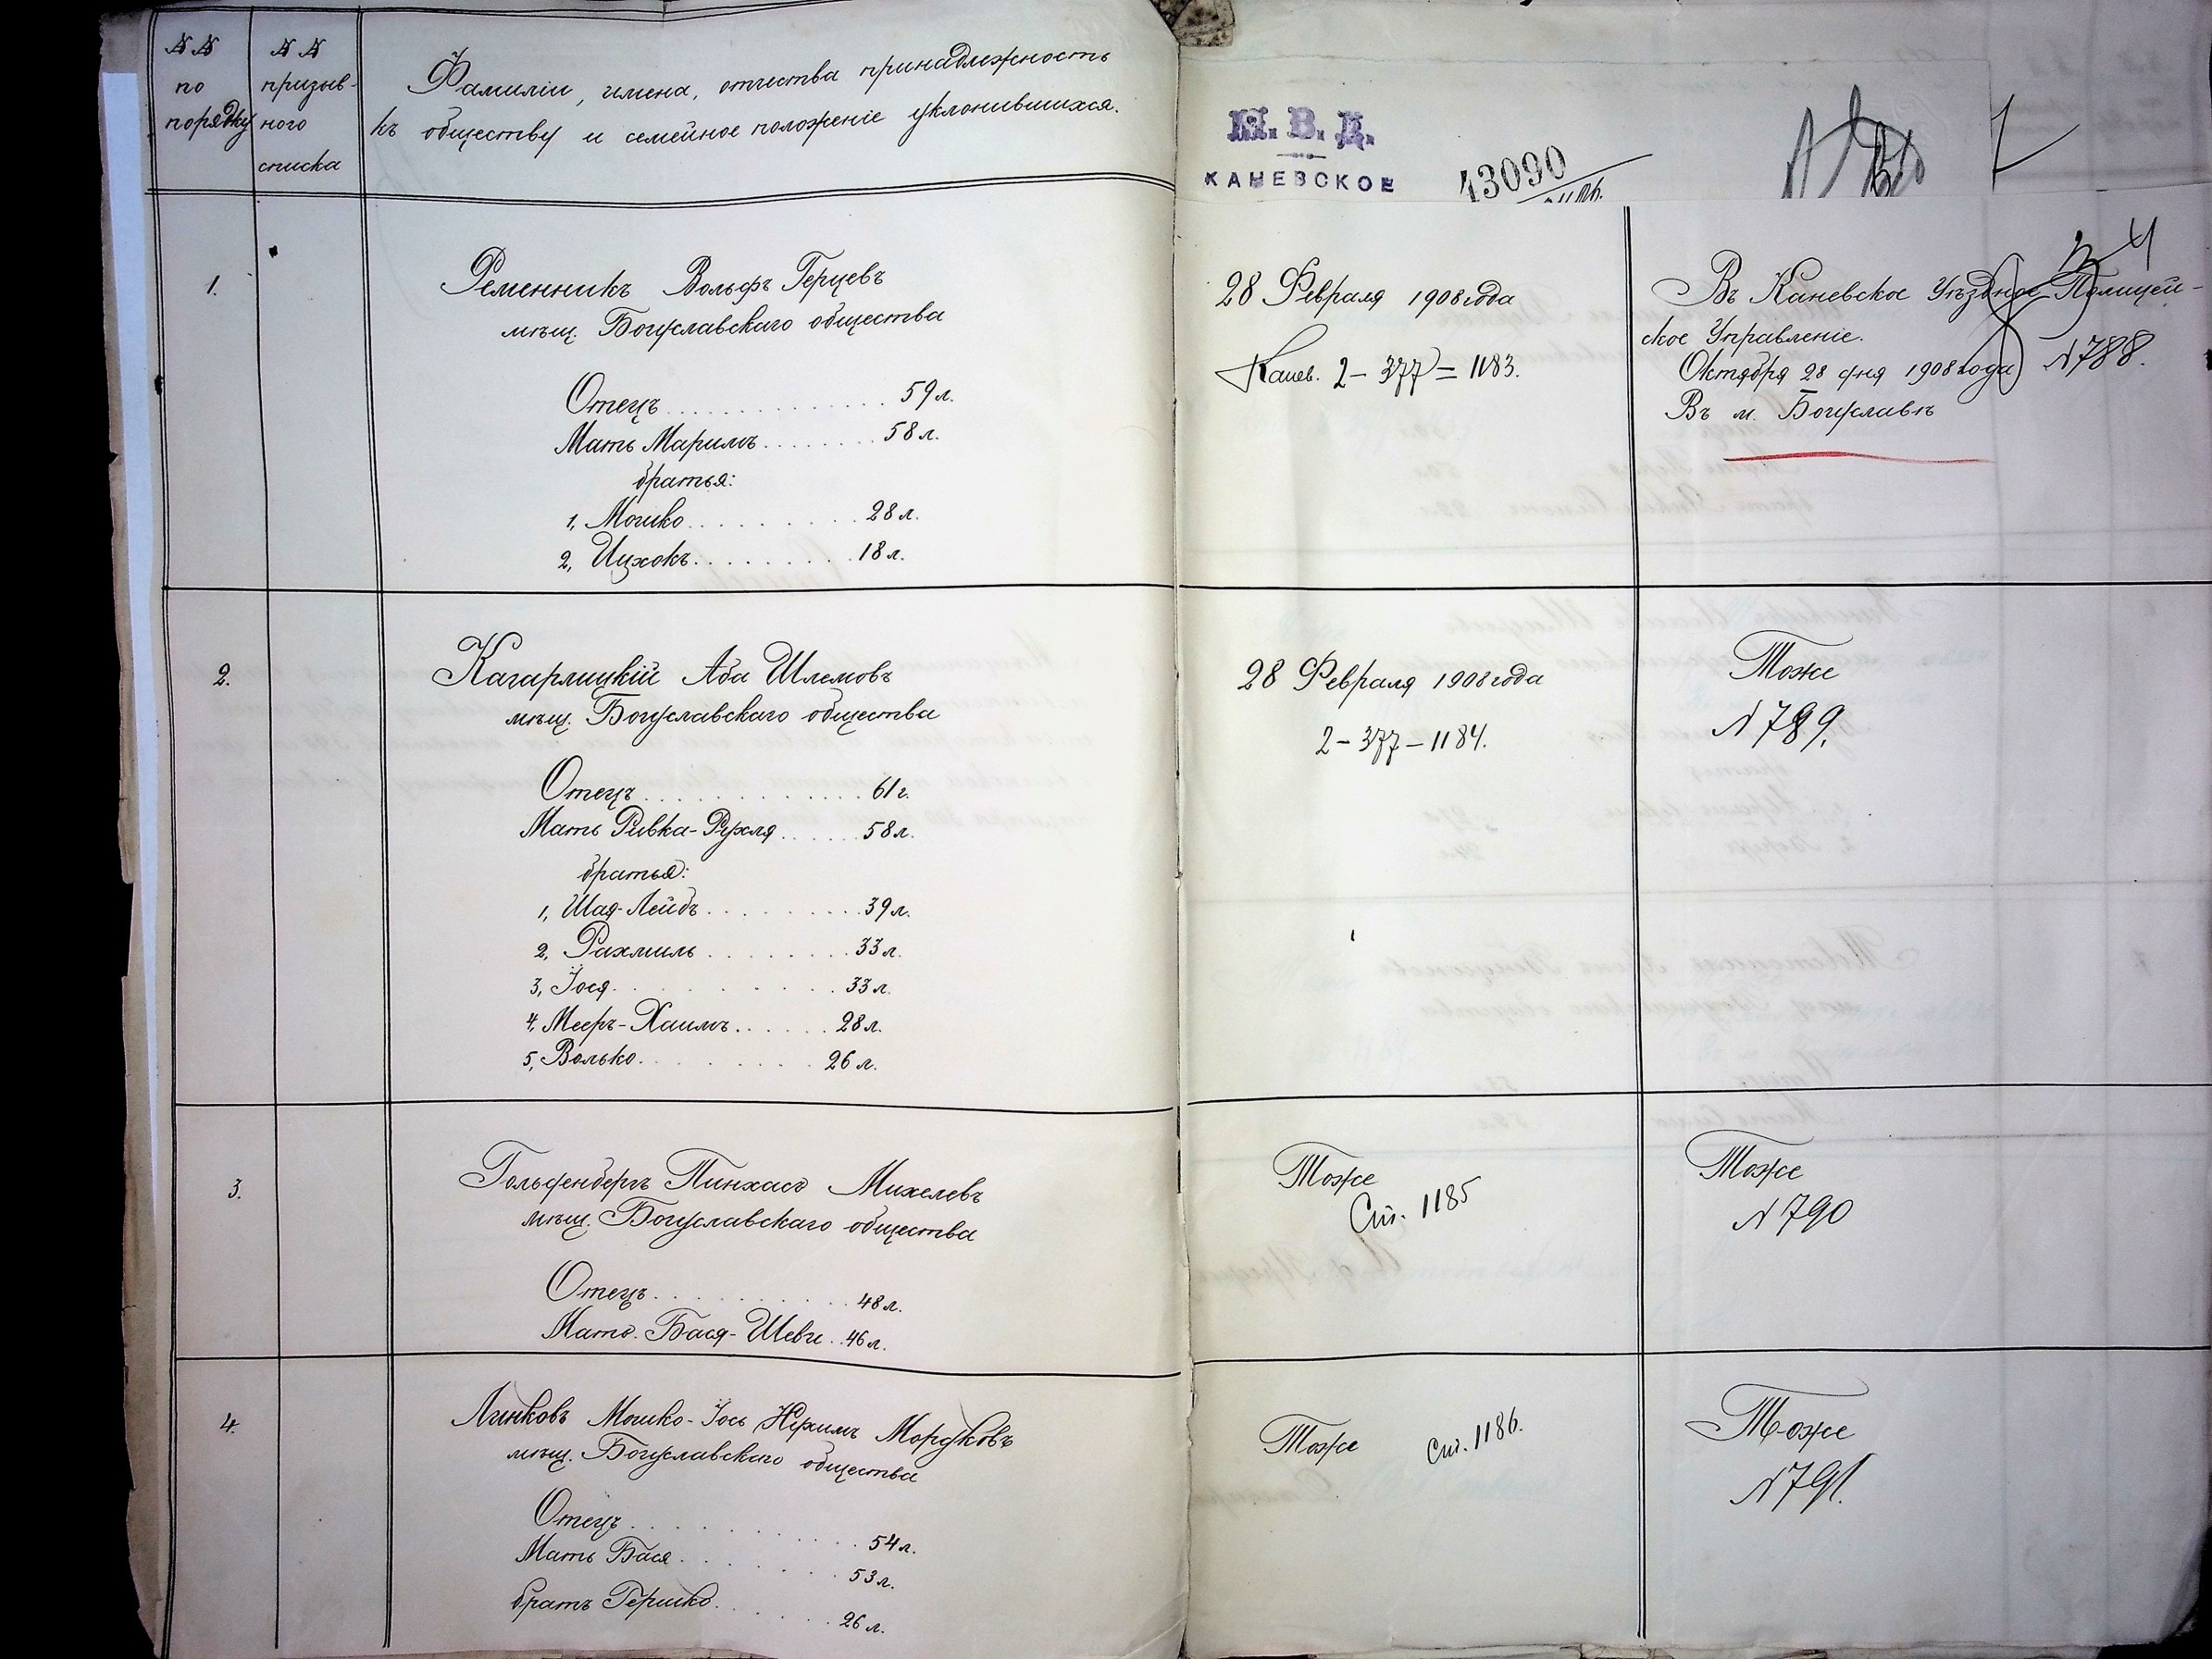 №№
по
порядку
№№
призыв-
ного
списка
Фамиліи, имена, отчества принадлежность
къ обществу и семейное положеніе уклонившихся.
М. В. Д.
КАНЕВСКОЕ
43090
1.
Ременникъ Вольфъ Герцевъ
мѣщ. Богуславскаго общества
Отецъ 59 л.
Мать Маримъ 58 л.
братья:
1, Мошко 28 л.
2, Ицхокъ 18 л.
28 Февраля 1908 года
Канев. 2 – 377 = 1183.
Въ Каневское Уѣздное Полицей-
ское Управленіе.
Октября 28 дня 1908 года № 788.
Въ м. Богуславѣ
2.
Кагарлицкій Аба Шлемовъ
мѣщ. Богуславскаго общества
Отецъ 61 г.
Мать Ривка-Рухля 58 л.
братья:
1, Шая-Лейбъ 39 л.
2, Рахмиль 33 л.
3, Іося 33 л.
4, Мееръ-Хаимъ 28 л.
5, Волько 26 л.
28 Февраля 1908 года
2 – 377 – 1184.
Тоже
№ 789.
3.
Гольфенбергъ Пинхасъ Михелевъ
мѣщ. Богуславскаго общества
Отецъ 48 л.
Мать Бася-Шева 46 л.
Тоже
Ст. 1185
Тоже
№ 790
4.
Линковъ Мошко-Іось Нухимъ Мордковъ
мѣщ. Богуславскаго общества
Отецъ 54 л.
Мать Бася 53 л.
братъ Гершко 26 л.
Тоже Ст. 1186.
Тоже
№ 791.